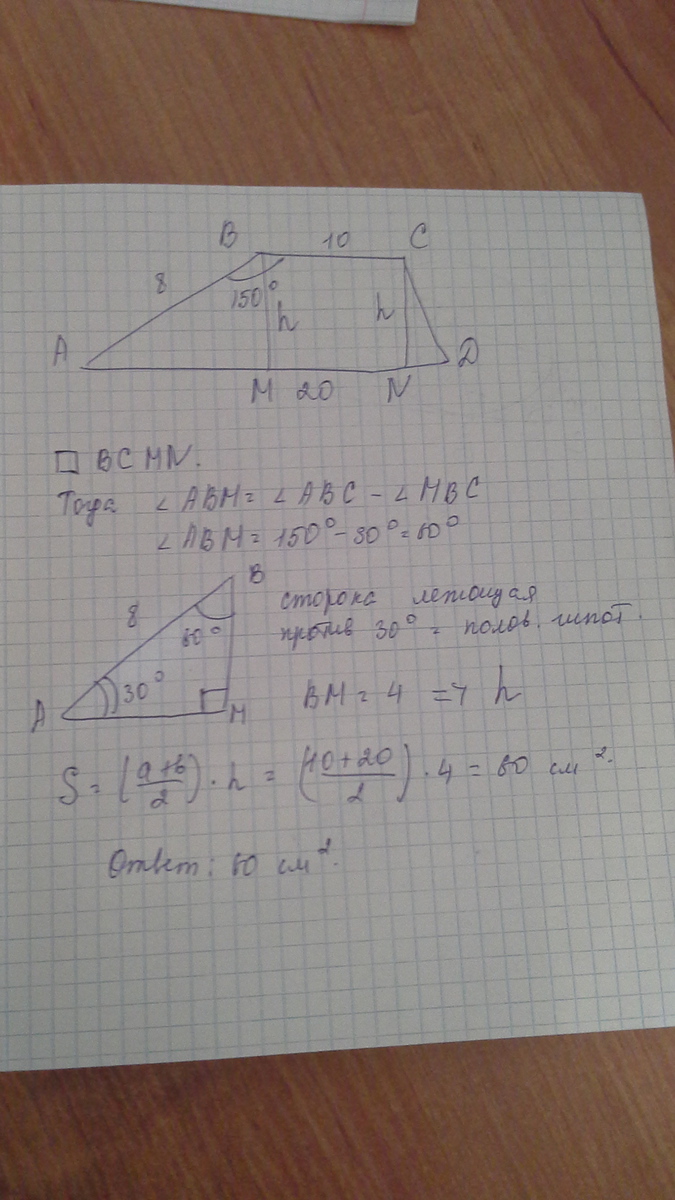 B 10 C
8 150° h h
A M 20 N D
□ BCMN.
Тогда ∠ABM = ∠ABC - ∠MBC
∠ABM = 150° - 90° = 60°
B
8 60°
A 30° M
сторона лежощая
против 30° = полов. гипот.
BM = 4 => h
S = (a+b/2) · h = (10+20/2) · 4 = 60 см².
Ответ: 60 см².